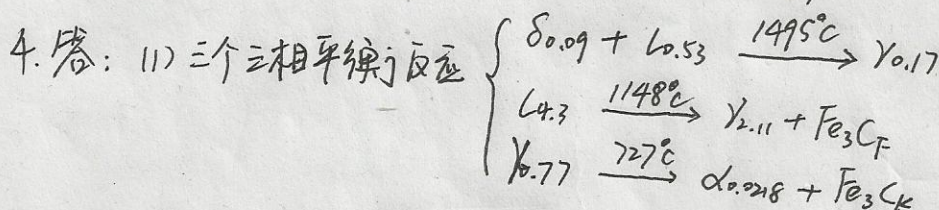 4.答：(1)三个三相平衡反应 δ0.09 + L0.53 —1495℃→ γ0.17
L4.3 —1148℃→ γ2.11 + Fe3CF
γ0.77 —727℃→ α0.0218 + Fe3CK